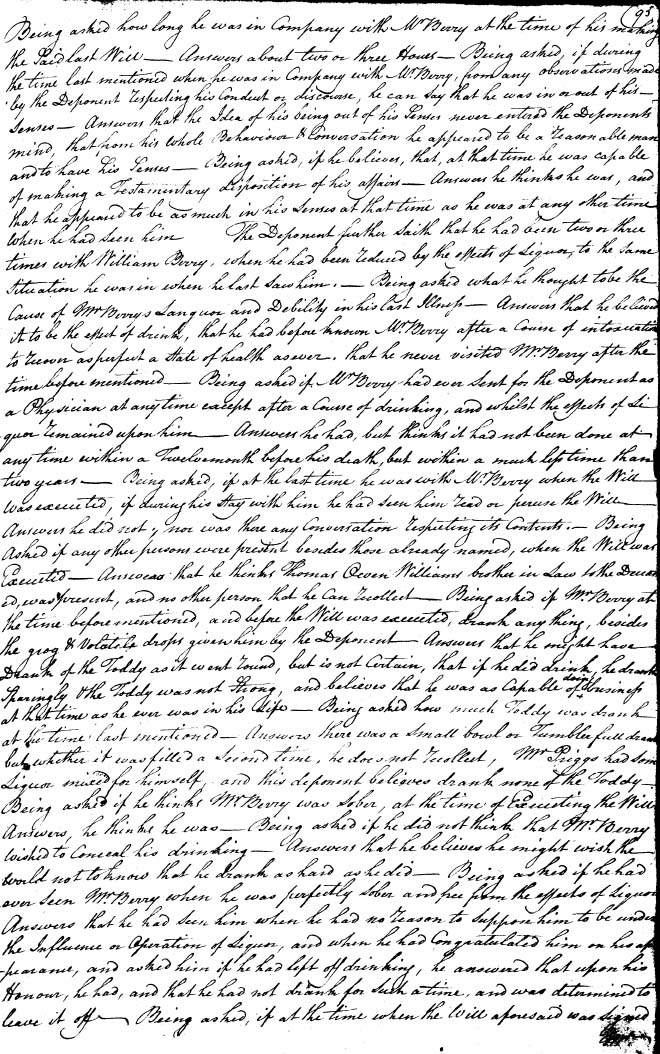 95
Being asked how long he was in Company with Mr Berry at the time of his making
the said last Will — Answers about two or three Hours — Being asked, if during
the time last mentioned when he was in Company with Mr Berry, from any observations made
by the Deponent respecting his Conduct or discourse, he can say that he was in or out of his —
Senses — Answers that the Idea of his being out of his Senses never entered the Deponents
mind, that from his whole Behaviour & Conversation he appeared to be a reasonable man
and to have his Senses — Being asked, if he believes, that, at that time he was capable
of making a Testamentary disposition of his affairs — Answers he thinks he was, and
that he appeared to be as much in his Senses at that time as he was at any other time
when he had seen him The Deponent further saith that he had been two or three
times with William Berry, when he had been reduced by the effects of Liquor, to the same
Situation he was in when he last saw him. — Being asked what he thought to be the
Cause of Mr Berrys Languor and Debility in his last Illness — Answers that he believed
it to be the effect of drink, that he had before known Mr Berry after a Course of intoxication
to recover as perfect a State of health as ever. that he never visited Mr Berry after the
time before mentioned — Being asked if Mr Berry had ever sent for the Deponent as
a Physician at any time except after a Course of drinking, and whilst the effects of Li
quor remained upon him — Answers he had, but thinks it had not been done at
any time within a Twelvemonth before his death, but within a much less time than
two years — Being asked, if at the last time he was with Mr Berry when the Will
was executed, if during his stay with him he had seen him read or peruse the Will —
Answers he did not, nor was there any Conversation respecting its Contents. — Being
Asked if any other persons were present besides those already named, when the Will was
Executed — Answers that he thinks Thomas Owen Williams brother in Law to the Deceas
ed, was present, and no other person that he Can recollect — Being asked if Mr Berry at
the time before mentioned, and before the Will was executed, drank any thing, besides
the grog & Volatile drops given him by the Deponent — Answers that he might have
Drank of the Toddy as it went round, but is not Certain, that if he did drink, he drank
Sparingly & the Toddy was not strong, and believes that he was as Capable of doing business
at that time as he ever was in his life — Being asked how much Toddy was drank
at the time last mentioned — Answers there was a small bowl or Tumbler full drank
but whether it was filled a second time, he does not recollect, Mr Priggs had some
Liquor mixed for himself and this deponent believes drank none of the Toddy —
Being asked if he thinks Mr Berry was sober, at the time of Executing the Will
Answers, he thinks he was — Being asked if he did not think that Mr Berry
wished to Conceal his drinking — Answers that he believes he might wish the
world not to know that he drank as hard as he did — Being asked if he had
ever seen Mr Berry when he was perfectly sober and free from the effects of Liquor
Answers that he had seen him when he had no reason to suppose him to be under
the Influence or Operation of Liquor, and when he had Congratulated him on his ap
-pearance, and asked him if he had left off drinking, he answered that upon his
Honour, he had, and that he had not drank for such a time, and was determined to
leave it off — Being asked, if at the time when the Will aforesaid was signed